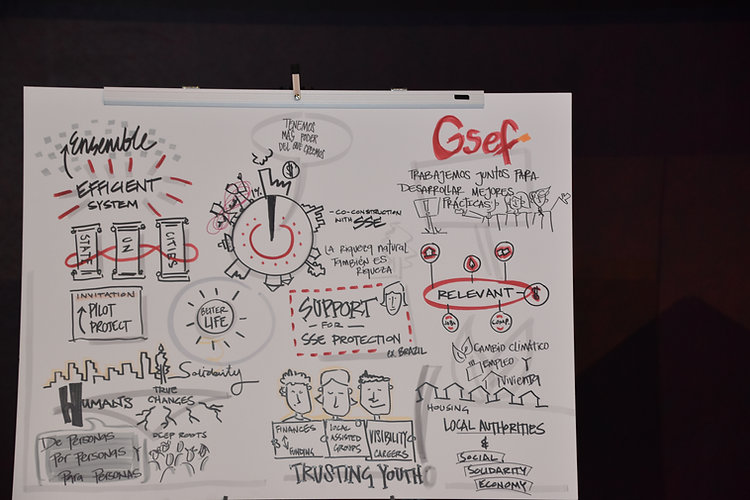 Ensemble
EFFICIENT
SYSTEM
STATE
UN
CITIES
INVITATION
PILOT
PROJECT
BETTER
LIFE
Solidarity
HUMANS
TRUE
CHANGES
DEEP ROOTS
De PERSONAS
POR PERSONAS Y
PARA PERSONAS
TENEMOS
MÁS PODER
DEL QUE CREEMOS
1%
$
- CO-CONSTRUCTION
WITH SSE
LA RIQUEZA NATURAL
TAMBIÉN ES
RIQUEZA
SUPPORT
- FOR -
SSE PROTECTION
EX. BRAZIL
FINANCES
FUNDING
LOCAL
ASSISTED
GROUPS
VISIBILITY
CAREERS
TRUSTING YOUTH
Gsef
TRABAJEMOS JUNTOS PARA
DESARROLLAR MEJORES
PRÁCTICAS!
RELEVANT - $
CAMBIO CLIMÁTICO
EMPLEO Y
VIVIENDA
HOUSING
LOCAL AUTHORITIES
&
SOCIAL
SOLIDARITY
ECONOMY